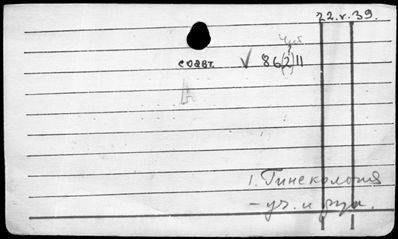 22.V.39.
соавт. √ 86(2)11
1. Гинекология
- уч. и рук.